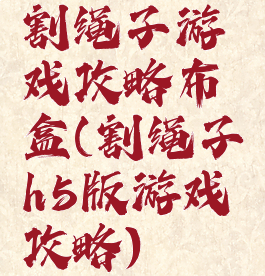 割绳子游
戏攻略布
盒(割绳子
h5版游戏
攻略)